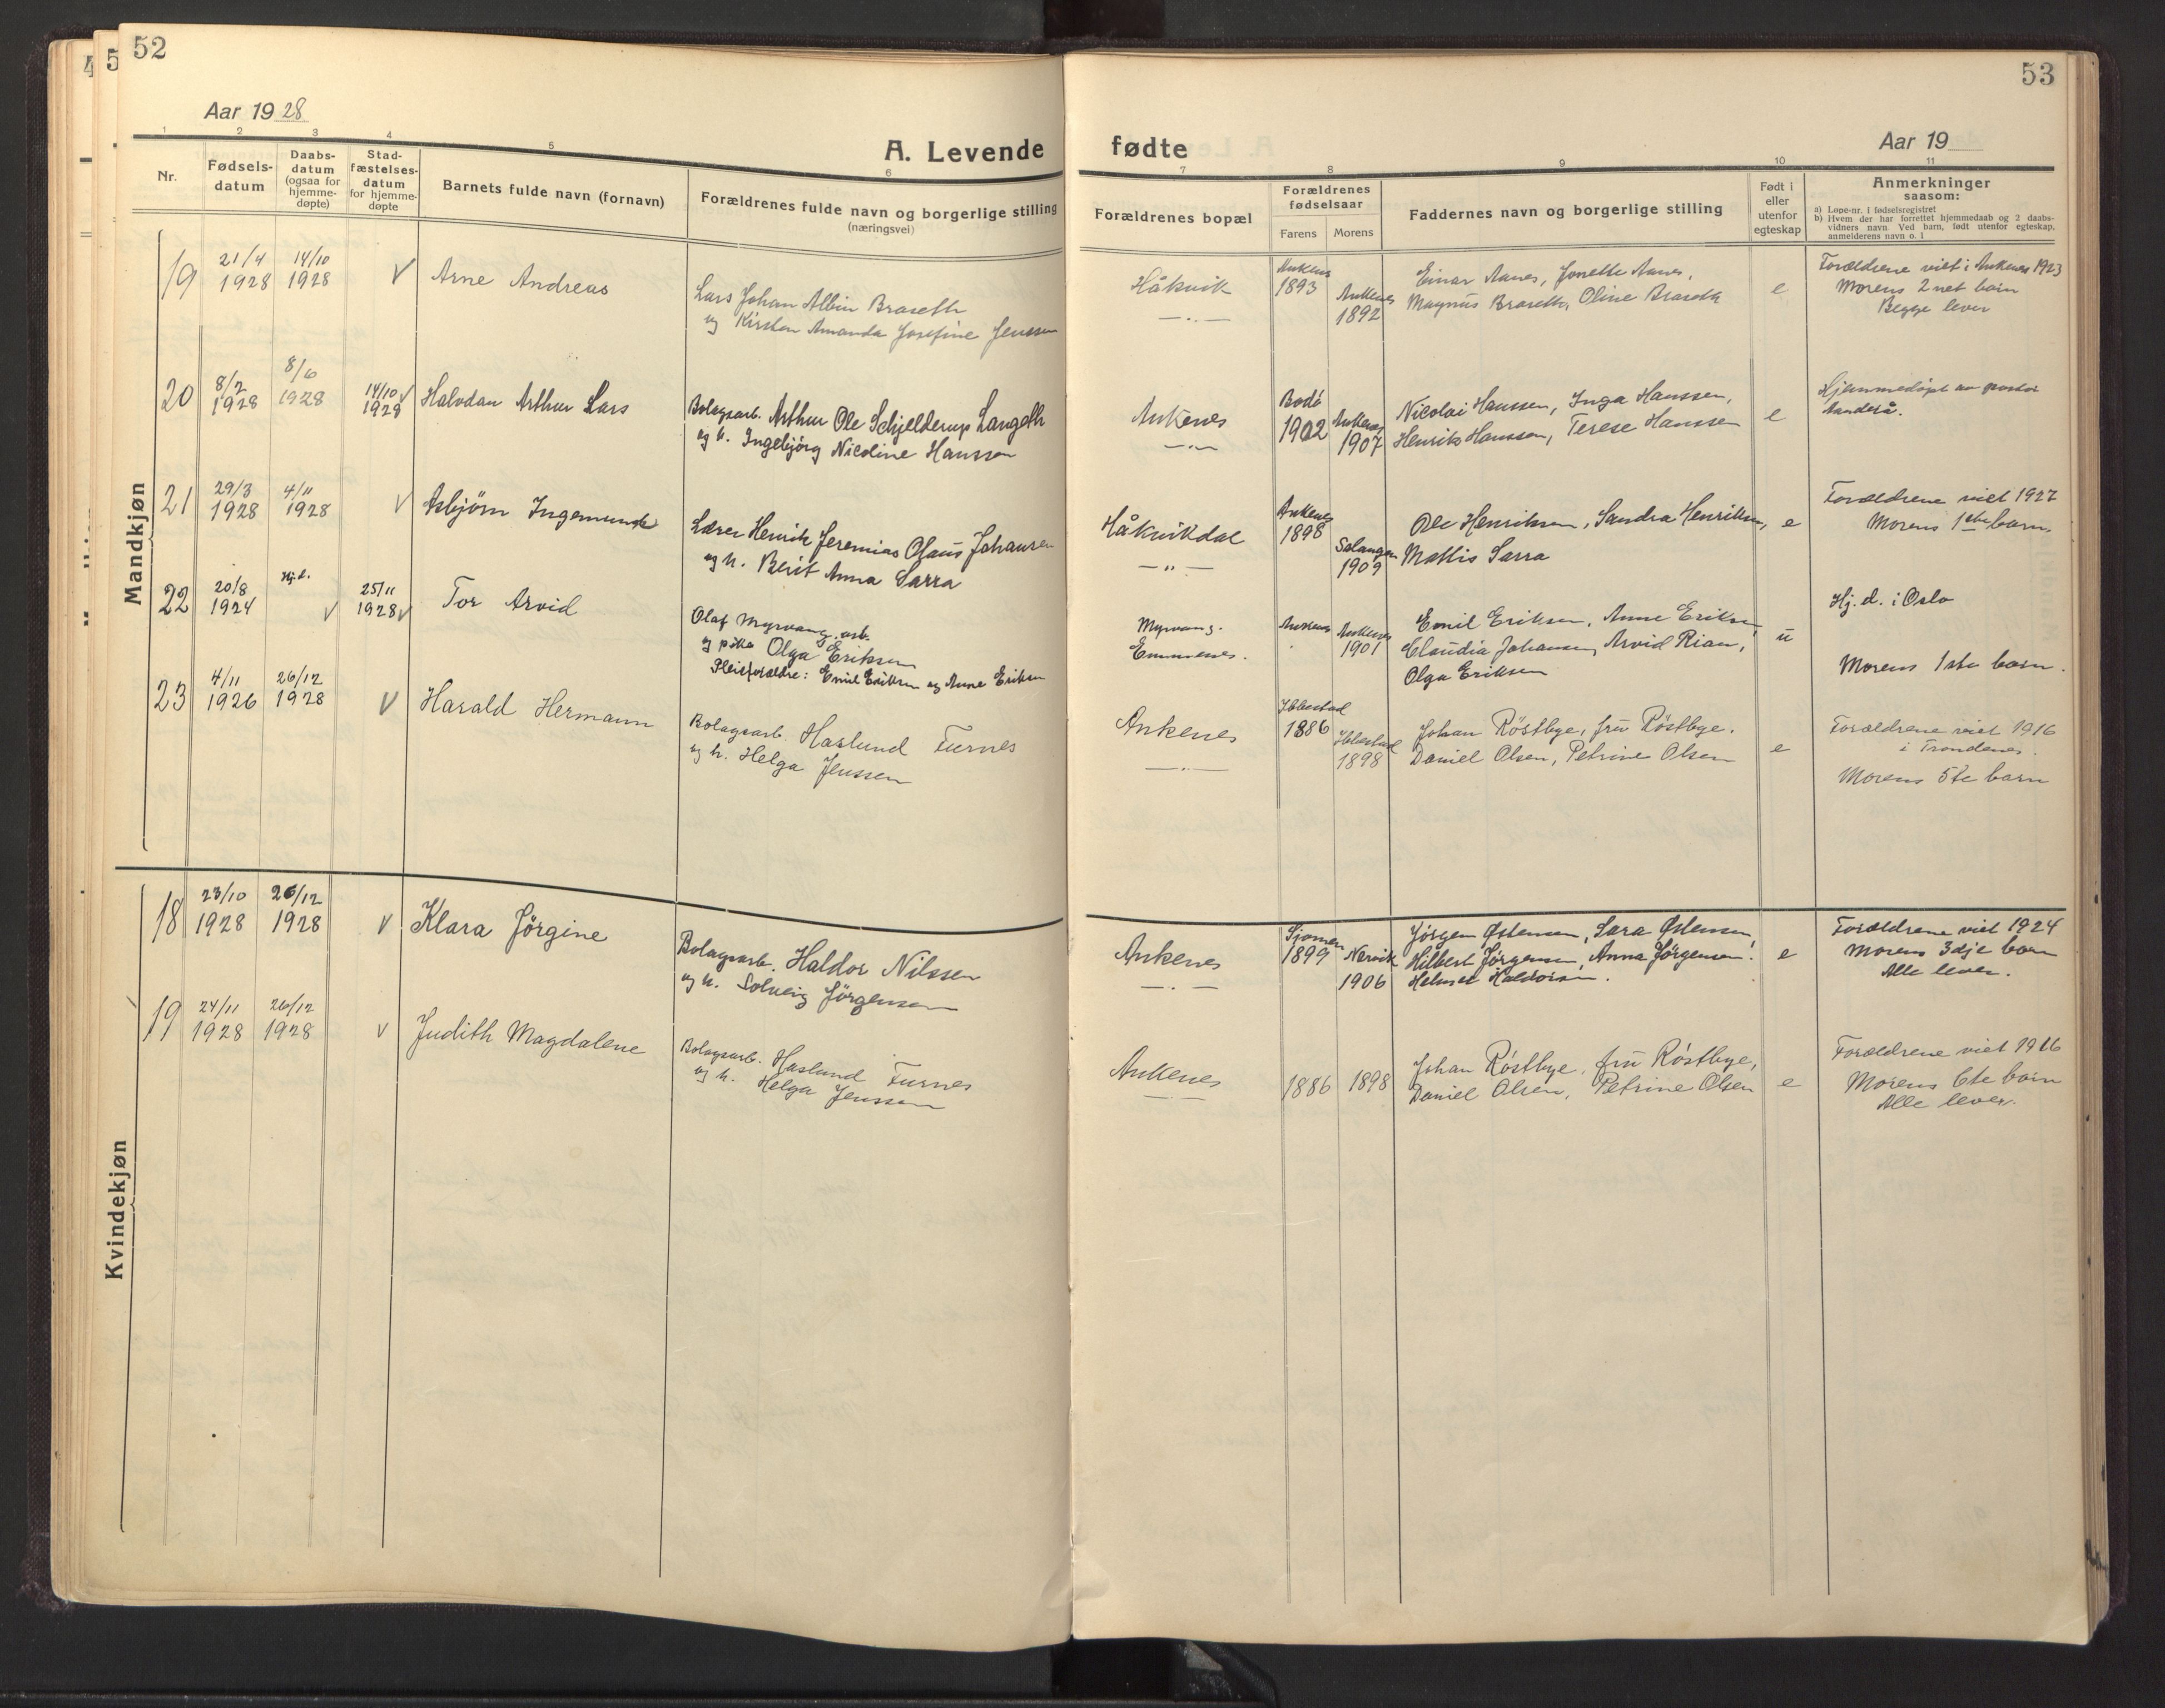 52
Aar 1928
A. Levende
1 2 3 4 5 6
Nr.
Fødsels-
datum
Daabs-
datum
(ogsaa for
hjemme-
døpte)
Stad-
fæstelses-
datum
for hjemme-
døpte
Barnets fulde navn (fornavn)
Forældrenes fulde navn og borgerlige stilling
(næringsvei)
Mandkjøn
19 21/4 1928 14/10 1928 Arne Andreas
Lars Johan Albin Braseth
og Kirsten Amanda Josefine Jenssen
20 8/2 1928 8/6 1928 14/10 1928 Halvdan Arthur Lars
Bolagsarb. Arthur Ole Schjelderup Langeth
og h. Ingebjörg Nicoline Hanssen
21 29/3 1928 4/11 1928 Asbjörn Ingemund
Lærer Henrik Jeremias Olaus Johansen
og h. Berit Anna Sarra
22 20/8 1924 Hj.d. 25/11 1928 Tor Arvid
Olaf Myrvang, arb.
og pike Olga Eriksen
Pleieforældre: Emil Eriksen og Anne Eriksen
23 4/11 1926 26/12 1928 Harald Hermann
Bolagsarb. Haslund Furnes
og h. Helga Jenssen
Kvindekjøn
18 23/10 1928 26/12 1928 Klara Jörgine
Bolagsarb. Haldor Nilssen
og h. Solveig Jörgensen
19 24/11 1928 26/12 1928 Judith Magdalene
Bolagsarb. Haslund Furnes
og h. Helga Jenssen
53
fødte
Aar 19
7 8 9 10 11
Forældrenes bopæl
Forældrenes
fødselsaar
Farens Morens
Faddernes navn og borgerlige stilling
Født i
eller
utenfor
egteskap
Anmerkninger
saasom:
a) Løpe-nr. i fødselsregistret
b) Hvem der har forrettet hjemmedaab og 2 daabs-
vidners navn. Ved barn, født utenfor egteskap,
anmelderens navn o. l.
Håkvik
Ankenes 1893
Ankenes 1892
Einar Aanes, Jonette Aanes,
Magnus Braseth, Oline Braseth
e
Forældrene viet i Ankenes 1923
Morens 2net barn
Begge lever
Ankenes
Bodö 1902
Ankenes 1907
Nicolai Hanssen, Inga Hanssen,
Henrik Hanssen, Terese Hanssen
e
Hjemmedöpt av pastor
Håkvikdal
Ankenes 1898
Salangen 1909
Ole Henriksen, Sandra Henriksen,
Mattis Sarra
e
Forældrene viet 1927
Morens 1ste barn.
Myrvang.
Emmenes.
Ankenes
Ankenes 1901
Emil Eriksen, Anne Eriksen,
Claudia Johansen, Arvid Rian,
Olga Eriksen
u
Hj. d. i Oslo
Morens 1ste barn.
Ankenes
Ibbestad 1886
Ibbestad 1898
Johan Röstbye, fru Röstbye.
Daniel Olsen, Petrine Olsen
e
Forældrene viet 1916
i Trondenes.
Morens 5te barn
Ankenes
Sjomen 1899
Narvik 1906
Jörgen Østensen, Sara Østensen,
Hilbert Jörgensen, Anna Jörgensen.
e
Forældrene viet 1924
Morens 3dje barn
Alle lever.
Ankenes
1886 1898
Johan Röstbye, fru Röstbye,
Daniel Olsen, Petrine Olsen
e
Forældrene viet 1916
Morens 6te barn
Alle lever.